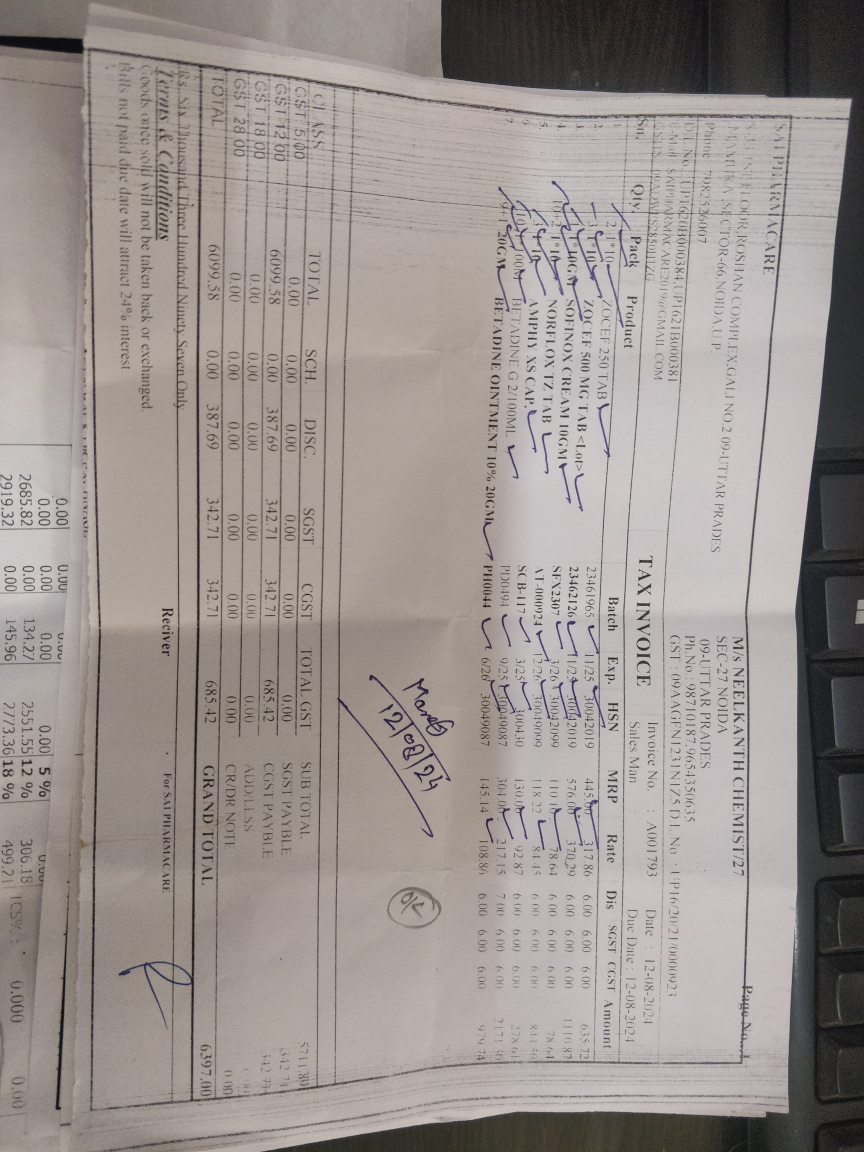 Page No..1
SAI PHARMACARE
ROSHAN COMPLEX,GALI NO.2 09-UTTAR PRADES
MAMURA ,SECTOR-66,NOIDA,U.P.
Phone 7982526007
D.L. No. : UP1620B000384,UP1621B000381
E-Mail SAIPHARMACARE2019@GMAIL.COM
M/s NEELKANTH CHEMIST/27
SEC-27 NOIDA
09-UTTAR PRADES
Ph.No.: 98710187,9654350635
GST : 09AAGFN1231N1Z5 D.L. No : UP16/20/21/0000923
TAX INVOICE
Invoice No. : A001793 Date : 12-08-2024
Sales Man : Due Date : 12-08-2024
Sn. Qty. Pack Product Batch Exp. HSN MRP Rate Dis SGST CGST Amount
1*10 ZOCEF 250 TAB 23461965 11/25 30042019 317.86 6.00 6.00 6.00 635.72
2. 3 1*10 ZOCEF 500 MG TAB <Lot> 23462126 11/25 30042019 370.29 6.00 6.00 6.00 1110.87
3. SOFINOX CREAM 10GM SFX2307 3/26 30042099 78.64 6.00 6.00 6.00 78.64
4. 10+2 1*10 NORFLOX TZ TAB AT-000924 12/26 30049099 118.22 84.45 6.00 6.00 6.00
5. AMPHY XS CAP. SCB-117 3/25 300430 92.87 6.00 6.00 6.00 278.61
BETADINE G 2/100ML PD0494 9/25 30049087 217.15 7.00 6.00 6.00
7. 9+1 20GM BETADINE OINTMENT 10% 20GM PH0044 6/26 30049087 145.14 108.86 6.00 6.00 6.00 979.74
O/C
12/08/24
CLASS TOTAL SCH. DISC. SGST CGST TOTAL GST
GST 5.00 0.00 0.00 0.00 0.00 0.00 0.00
GST 12.00 6099.58 0.00 387.69 342.71 342.71 685.42
GST 18.00 0.00 0.00 0.00 0.00 0.00 0.00
GST 28.00 0.00 0.00 0.00 0.00 0.00 0.00
TOTAL 6099.58 0.00 387.69 342.71 342.71 685.42
SUB TOTAL 5711.89
SGST PAYBLE 342.71
CGST PAYBLE 342.71
ADD/LESS
CR/DR NOTE 0.00
GRAND TOTAL 6397.00
Rs. Six Thousand Three Hundred Ninety Seven Only
Terms & Conditions
Goods once sold will not be taken back or exchanged.
Bills not paid due date will attract 24% interest
Reciver
For SAI PHARMACARE
0.00 0.00 0.00 0.00 5 %
2685.82 0.00 134.27 2551.55 12 % 306.18 TCS% : 0.000 0.00
2919.32 0.00 145.96 2773.36 18 % 499.21